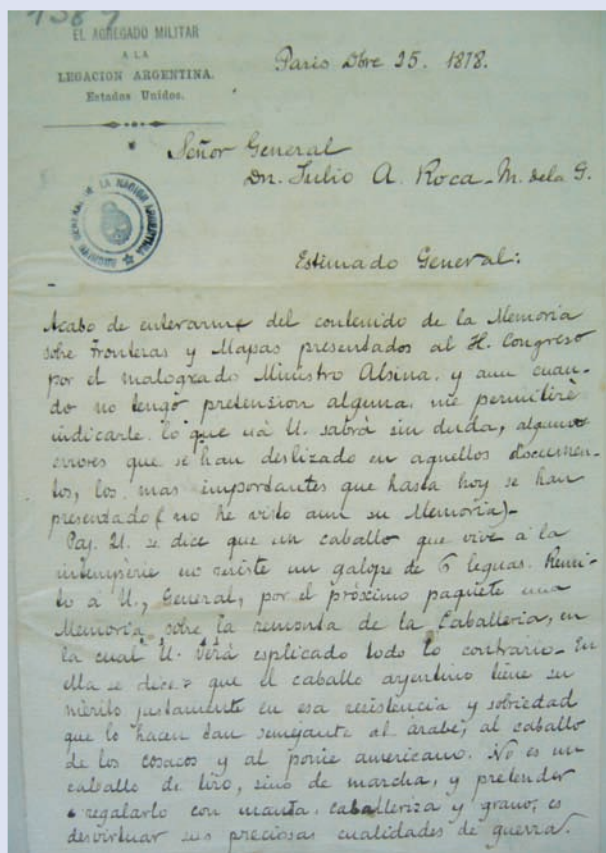 EL AGREGADO MILITAR
A LA
LEGACION ARGENTINA.
Estados Unidos.
Paris Dbre 25. 1878.
Señor General
Dn. Julio A. Roca - M. de la G.
ARCHIVO GENERAL DE LA NACION ARGENTINA
Estimado General:
Acabo de enterarme del contenido de la Memoria
sobre Fronteras y Mapas presentados al H. Congreso
por el malogrado Ministro Alsina, y aun cuan-
do no tengo pretension alguna, me permitiré
indicarle, lo que yá U. sabrá sin duda, algunos
errores que se han deslizado en aquellos documen-
tos, los mas importantes que hasta hoy se han
presentado (no he visto aun su Memoria) -
Paj. 21. se dice que un caballo que vive á la
intemperie no resiste un galope de 6 leguas. Remi-
to a U., General, por el próximo paquete una
Memoria sobre la remonta de la Caballeria, en
la cual U. verá esplicado todo lo contrario - En
ella se dice que el caballo argentino tiene su
mérito justamente en esa resistencia y sobriedad
que lo hacen tan semejante al árabe, al caballo
de los cosacos y al ponie americano. No es un
caballo de tiro, sino de marcha, y pretender
regalarlo con manta, caballeriza y grano, es
desvirtuar sus preciosas cualidades de guerra.